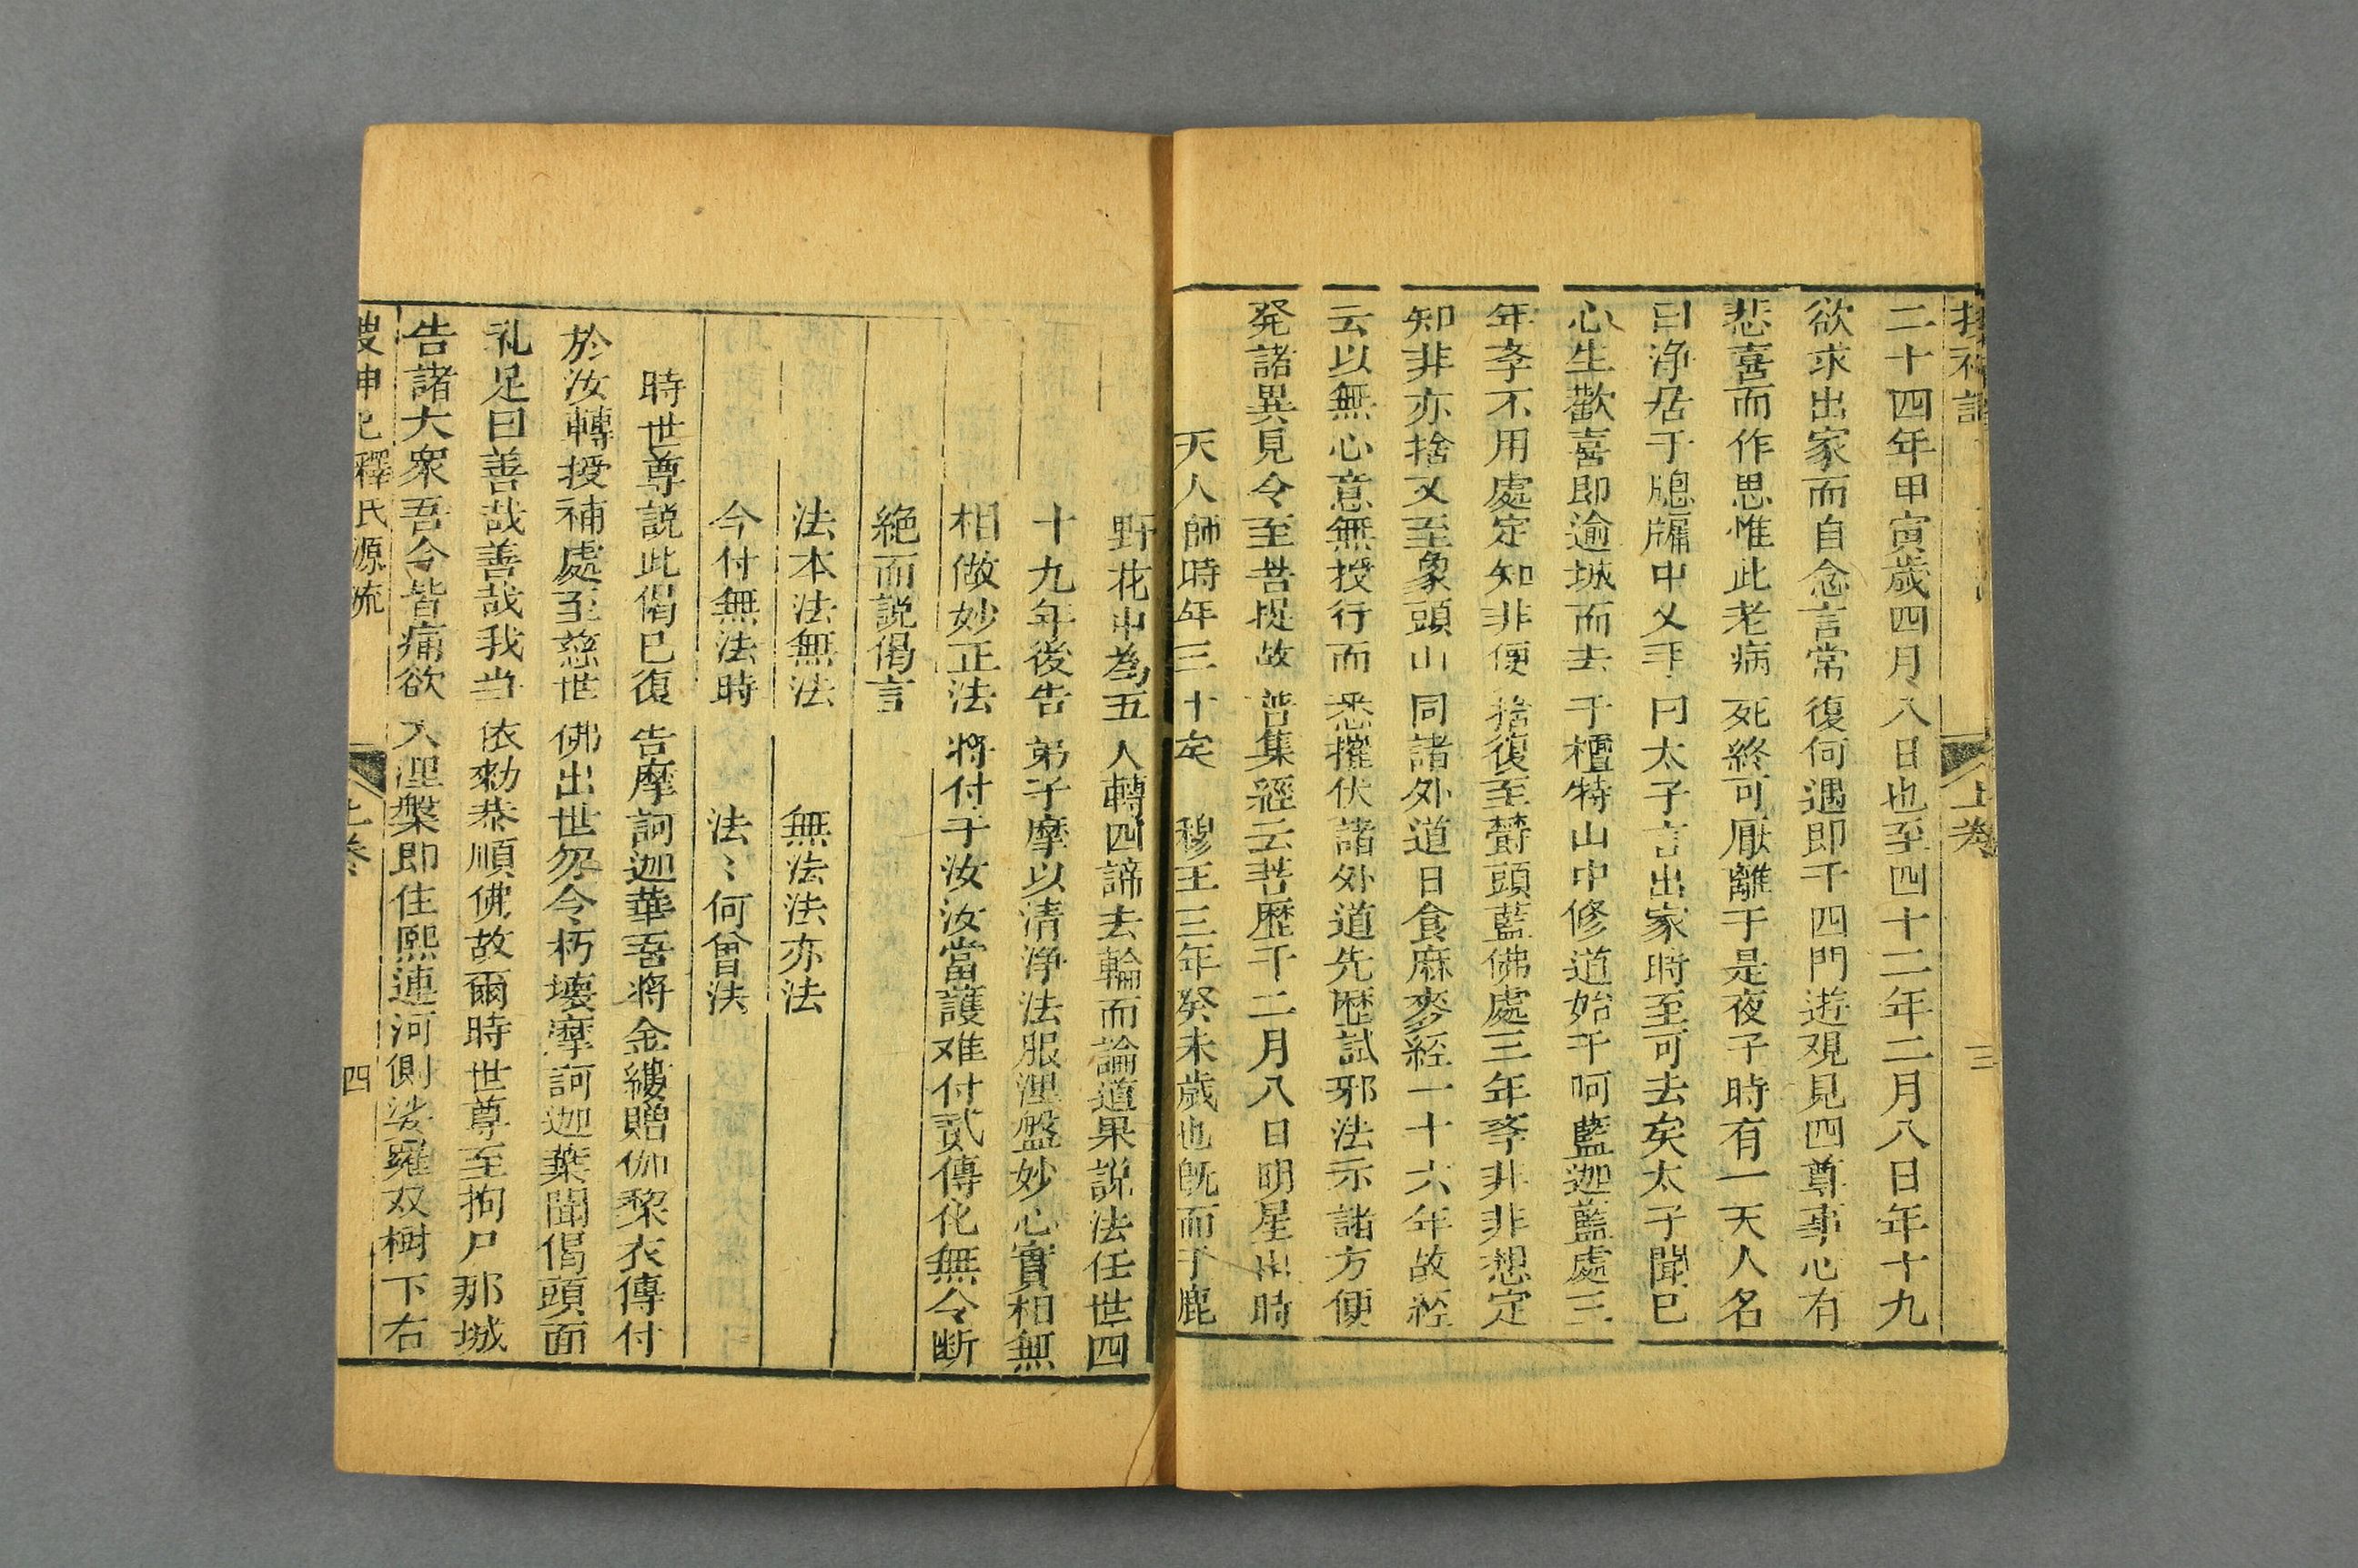 搜神記 上卷 三
二十四年甲寅歲四月八日也至四十二年二月八日年十九
欲求出家而自念言常復何遇即于四門遊覌見四尊事心有
悲喜而作思惟此老病死終可厭離于是夜子時有一天人名
曰淨居于牎牖中叉手曰太子言出家時至可去矣太子聞已
心生歡喜即逾城而去于檀特山中修道始于呵藍迦藍處三
年斈不用處定知非便捨復至欝頭藍佛處三年斈非非想定
知非亦捨又至象頭山同諸外道日食麻麥經一十六年故經
云以無心意無授行而悉摧伏諸外道先歷試邪法示諸方便
発諸異見令至菩提故普集經云菩歷千二月八日明星出時
天人師時年三十矣 穆王三年癸未歲也旣而于鹿
野花中為五人轉四諦去輪而論道果説法任世四
十九年後告弟子摩以清淨法服涅盤妙心實相無
相做妙正法將付于汝汝當護难付贰傳化無令断
絶而説偈言
法本法無法 無法法亦法
今付無法時 法〻何曾法
時世尊説此偈已復告摩訶迦華吾将金縷贈伽黎衣傳付
於汝轉授補處至慈世佛出世忽令朽壊摩訶迦葉聞偈頭面
礼足曰善哉善哉我当依勑恭順佛故爾時世尊至拘尸那城
告諸大衆吾今皆痛欲入涅槃即住熙連河側娑羅双樹下右
搜神記釋氏源流 上卷 四